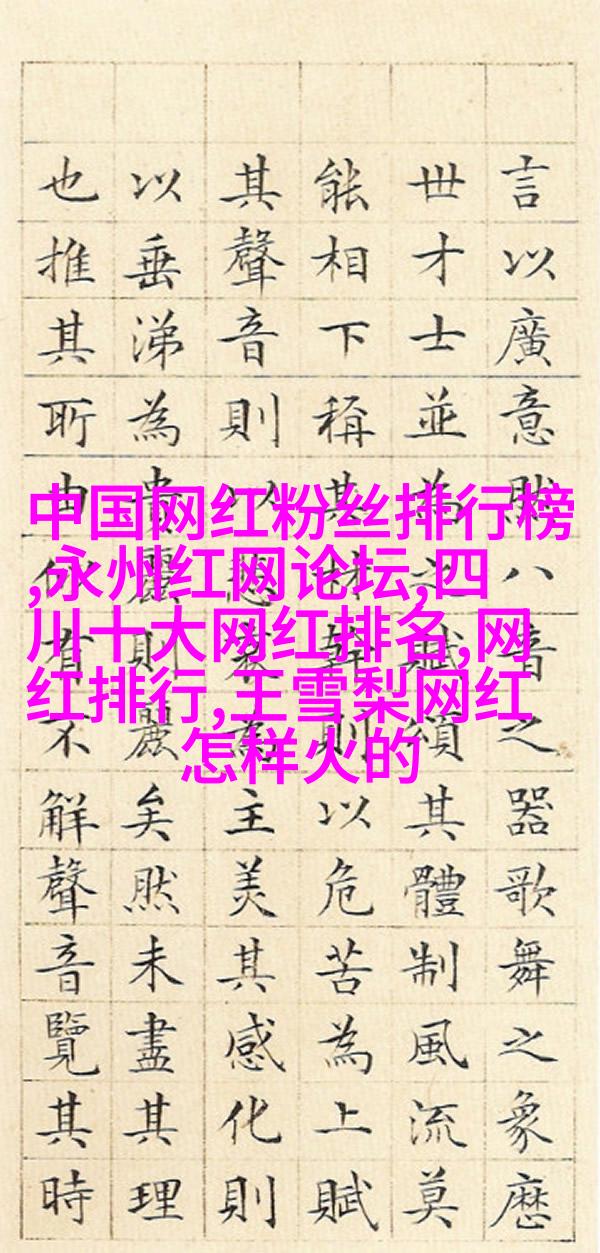 言以廣意然八音之器歌舞之象歷
世才士並為之賦頌其體制風流莫
能相下稱其材幹則以危苦為上賦
其聲音則以悲哀為主美其感化則
以垂涕為貴麗則麗矣然未盡其理
也推其所由似有不解聲音覽其時
中国网红粉丝排行榜
,永州红网论坛,四
川十大网红排名,网
红排行,王雪梨网红
怎样火的